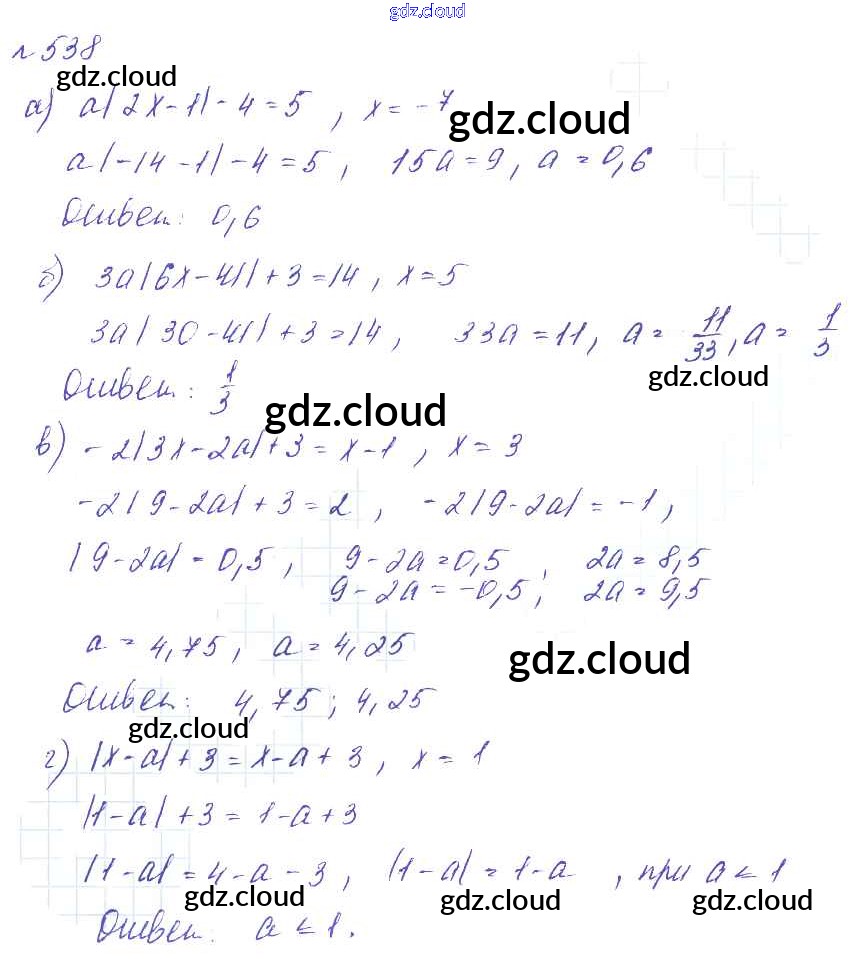 gdz.cloud
№ 538
gdz.cloud
а) a|2x-1|-4=5, x=-7
gdz.cloud
a|-14-1|-4=5, 15a=9, a=0,6
Ответ: 0,6
б) 3a|6x-41|+3=14, x=5
3a|30-41|+3=14, 33a=11, a= 11/33, a= 1/3
gdz.cloud
Ответ: 1/3
gdz.cloud
в) -2|3x-2a|+3=x-1, x=3
-2|9-2a|+3=2, -2|9-2a|=-1,
|9-2a|=0,5, 9-2a=0,5, 2a=8,5
9-2a=-0,5; 2a=9,5
a=4,75, a=4,25
gdz.cloud
Ответ: 4,75; 4,25
gdz.cloud
г) |x-a|+3=x-a+3, x=1
|1-a|+3=1-a+3
|1-a|=4-a-3, |1-a|=1-a, при a≤1
gdz.cloud gdz.cloud gdz.cloud
Ответ: a≤1.